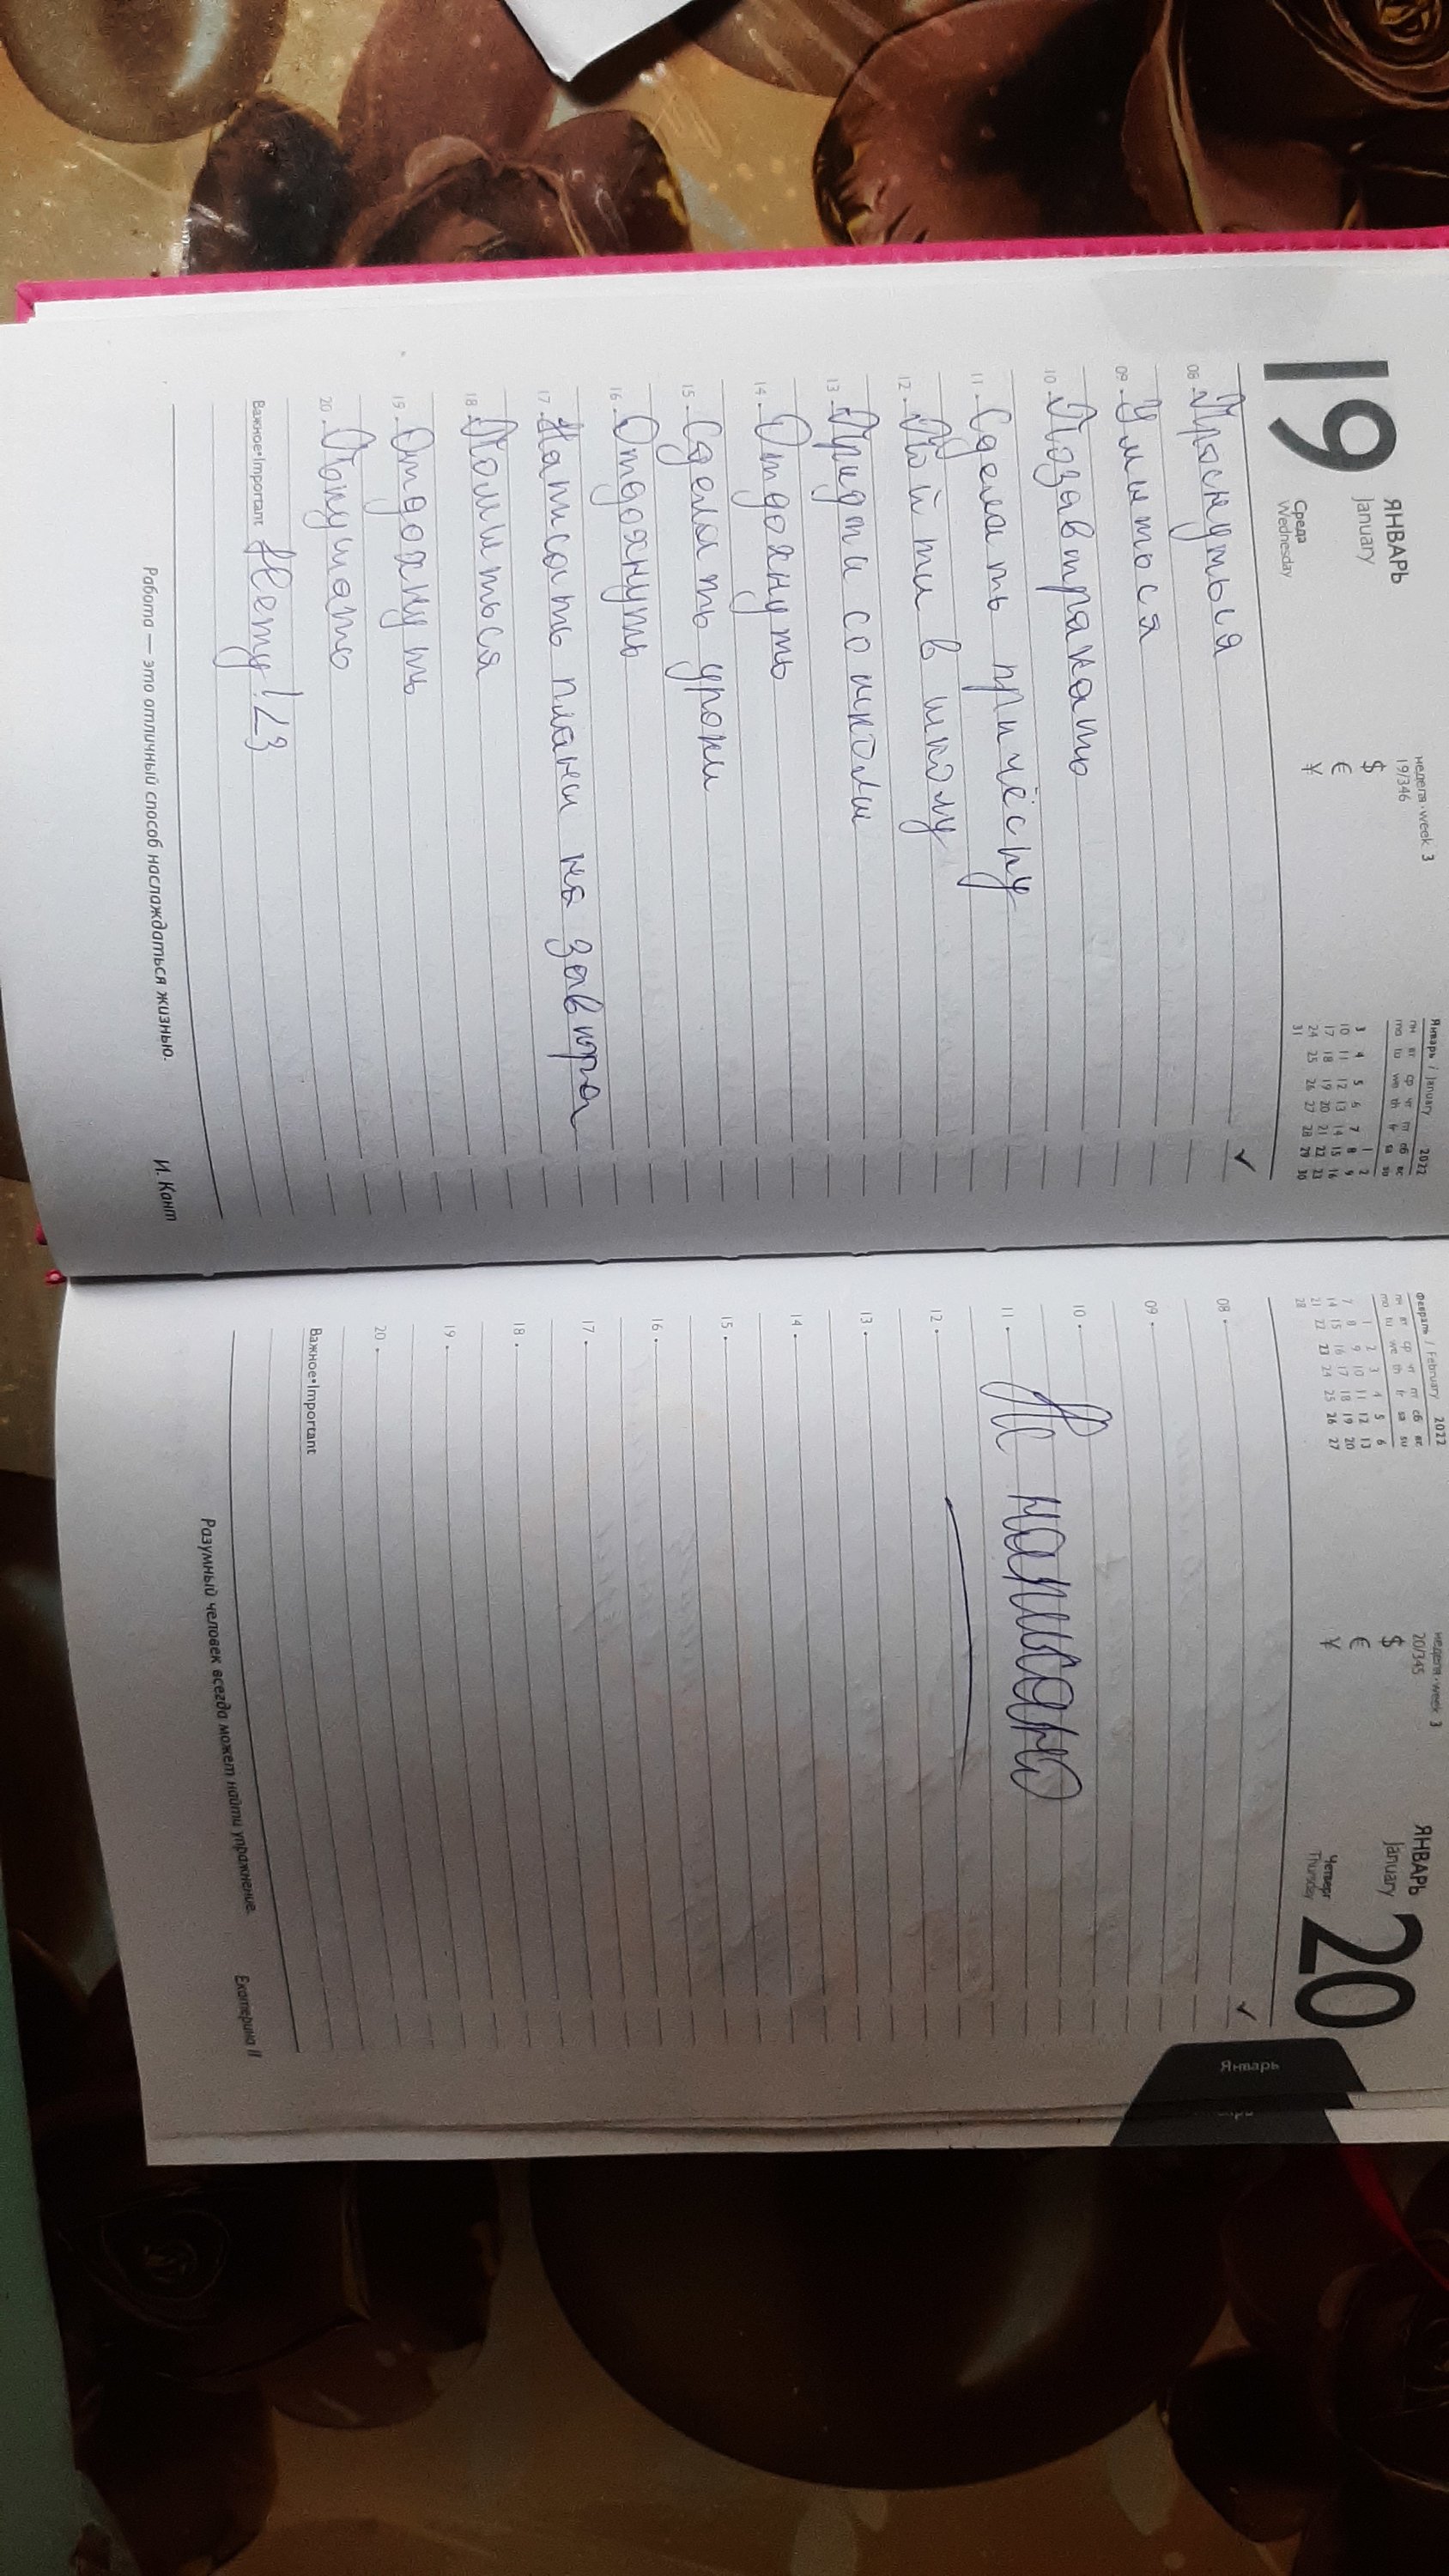 19
ЯНВАРЬ
January
Среда
Wednesday
неделя • week 3
19/346
$
€
¥
Январь / January 2022
пн вт ср чт пт сб вс
mo tu we th fr sa su
1 2
3 4 5 6 7 8 9
10 11 12 13 14 15 16
17 18 19 20 21 22 23
24 25 26 27 28 29 30
31
✓
08 • Проснуться
09 • Умыться
10 • Позавтракать
11 • Сделать причёску
12 • Пойти в школу
13 • Придти со школы
14 • Отдохнуть
15 • Сделать уроки
16 • Отдохнуть
17 • Написать планы на завтра
18 • Помыться
19 • Отдохнуть
20 • Покушать
Важное•Important Нету! <3
Работа — это отличный способ наслаждаться жизнью.
И. Кант
Февраль / February 2022
пн вт ср чт пт сб вс
mo tu we th fr sa su
1 2 3 4 5 6
7 8 9 10 11 12 13
14 15 16 17 18 19 20
21 22 23 24 25 26 27
28
неделя • week 3
20/345
$
€
¥
ЯНВАРЬ
January
Четверг
Thursday
20
✓
08 •
09 •
10 •
11 • Не написано
12 •
13 •
14 •
15 •
16 •
17 •
18 •
19 •
20 •
Важное•Important
Разумный человек всегда может найти упражнение.
Екатерина II
Январь